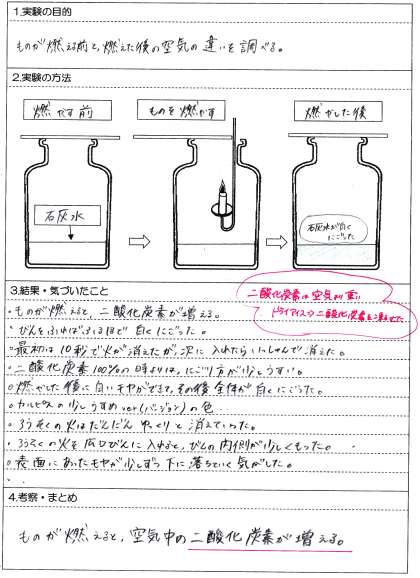 1.実験の目的
ものが燃える前と、燃えた後の空気の違いを調べる。
2.実験の方法
燃やす前
ものを燃やす
燃やした後
石灰水
石灰水が白く
にごった
3.結果・気づいたこと
二酸化炭素は空気より重い
ドライアイス→二酸化炭素を凍らせた
・ものが燃えると、二酸化炭素が増える。
・びんをふればふるほど白くにごった。
・最初は10秒で火が消えたが、次に入れたらいっしゅんで消えた。
・二酸化炭素100%の時よりは、にごり方が少しうすい。
・燃やした後に白いモヤができて、その後全体が白くにごった。
・カルピスの少しうすめver(バージョン)の色
・ろうそくの火はだんだんゆっくりと消えていった。
・ろうそくの火を広口びんに入れると、びんの内側が少しくもった。
・表面にあったモヤが少しずつ下に落ちていく気がした。
4.考察・まとめ
ものが燃えると、空気中の二酸化炭素が増える。